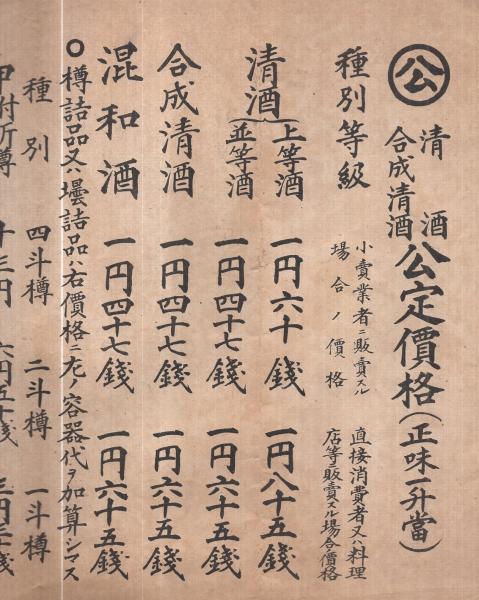 公
清酒
合成清酒
公定價格(正味一升當)
種別等級
小賣業者ニ販賣スル
場合ノ價格
直接消費者又ハ料理
店等ニ販賣スル場合價格
清酒
上等酒 一円六十錢 一円八十五錢
並等酒 一円四十七錢 一円六十五錢
合成清酒 一円四十七錢 一円六十五錢
混和酒 一円四十七錢 一円六十五錢
○樽詰品又ハ壜詰品ハ右價格ニ左ノ容器代ヲ加算シマス
種別 四斗樽 二斗樽 一斗樽
甲付 樽 十三円 六円五十錢 三円